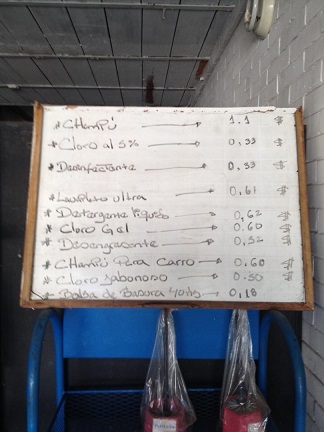 * CHampú → 1.1 $
* Cloro al 5% → 0,33 $
* Desinfectante → 0,33 $
* Lavaplato ultra → 0,61 $
* Detergente liquido → 0,62 $
* Cloro Gel → 0.60 $
* Desengrasante → 0,52 $
* CHampú Para Carro → 0,60 $
* Cloro Jabonoso → 0.50 $
* Bolsa de Basura 40lts → 0,18